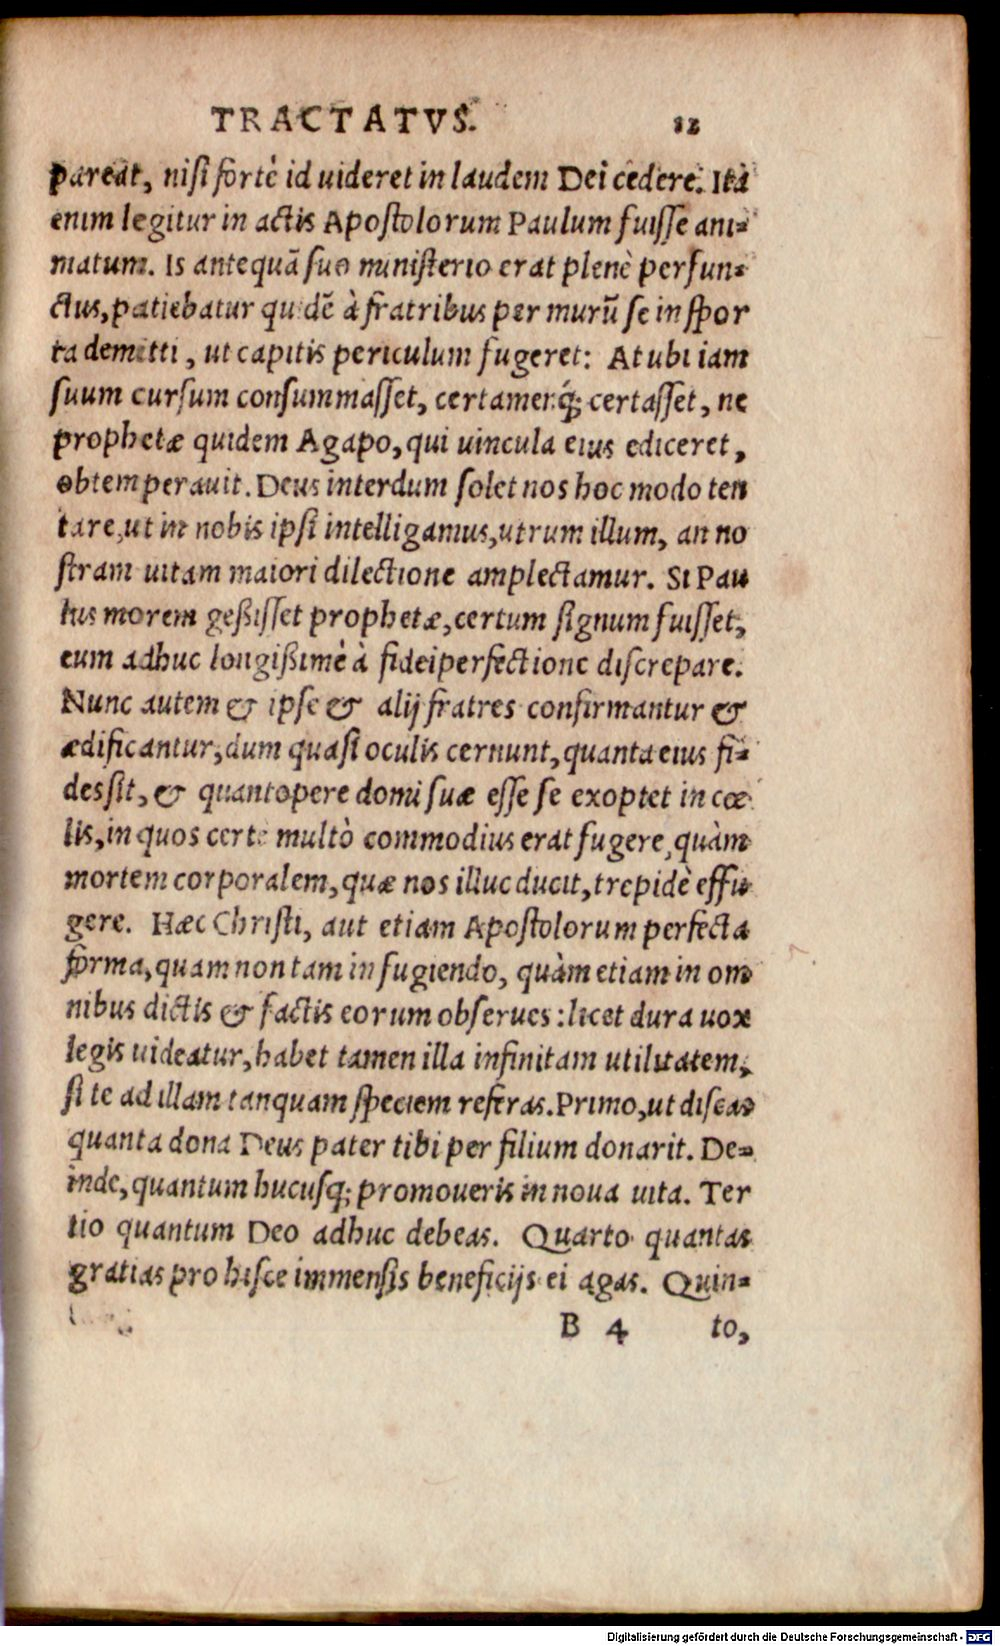 TRACTATVS. 12
pareat, nisi fortè id uideret in laudem Dei cedere. Ità
enim legitur in actis Apostolorum Paulum fuisse ani=
matum. Is antequā suo ministerio erat plenè perfun=
ctus, patiebatur quidē à fratribus per murū se in spor
ta demitti, ut capitis periculum fugeret: At ubi iam
suum cursum consummasset, certamenq́; certasset, ne
prophetæ quidem Agapo, qui uincula eius ediceret,
obtemperauit. Deus interdum solet nos hoc modo ten
tare, ut in nobis ipsi intelligamus, utrum illum, an no
stram uitam maiori dilectione amplectamur. Si Pau
lus morem geßisset prophetæ, certum signum fuisset,
eum adhuc longißimè à fidei perfectione discrepare.
Nunc autem & ipse & alij fratres confirmantur &
ædificantur, dum quasi oculis cernunt, quanta eius fi=
des sit, & quantopere domi suæ esse se exoptet in cœ
lis, in quos certè multò commodius erat fugere, quàm
mortem corporalem, quæ nos illuc ducit, trepidè effu
gere. Hæc Christi, aut etiam Apostolorum perfecta
forma, quam non tam in fugiendo, quàm etiam in om
nibus dictis & factis eorum obserues: licet dura uox
legis uideatur, habet tamen illa infinitam utilitatem,
si te ad illam tanquam speciem referas. Primo, ut discas
quanta dona Deus pater tibi per filium donarit. De=
inde, quantum hucusq; promoueris in noua uita. Ter
tio quantum Deo adhuc debeas. Quarto quantas
gratias pro hisce immensis beneficijs ei agas. Quin=
B 4 to,
Digitalisierung gefördert durch die Deutsche Forschungsgemeinschaft - DFG